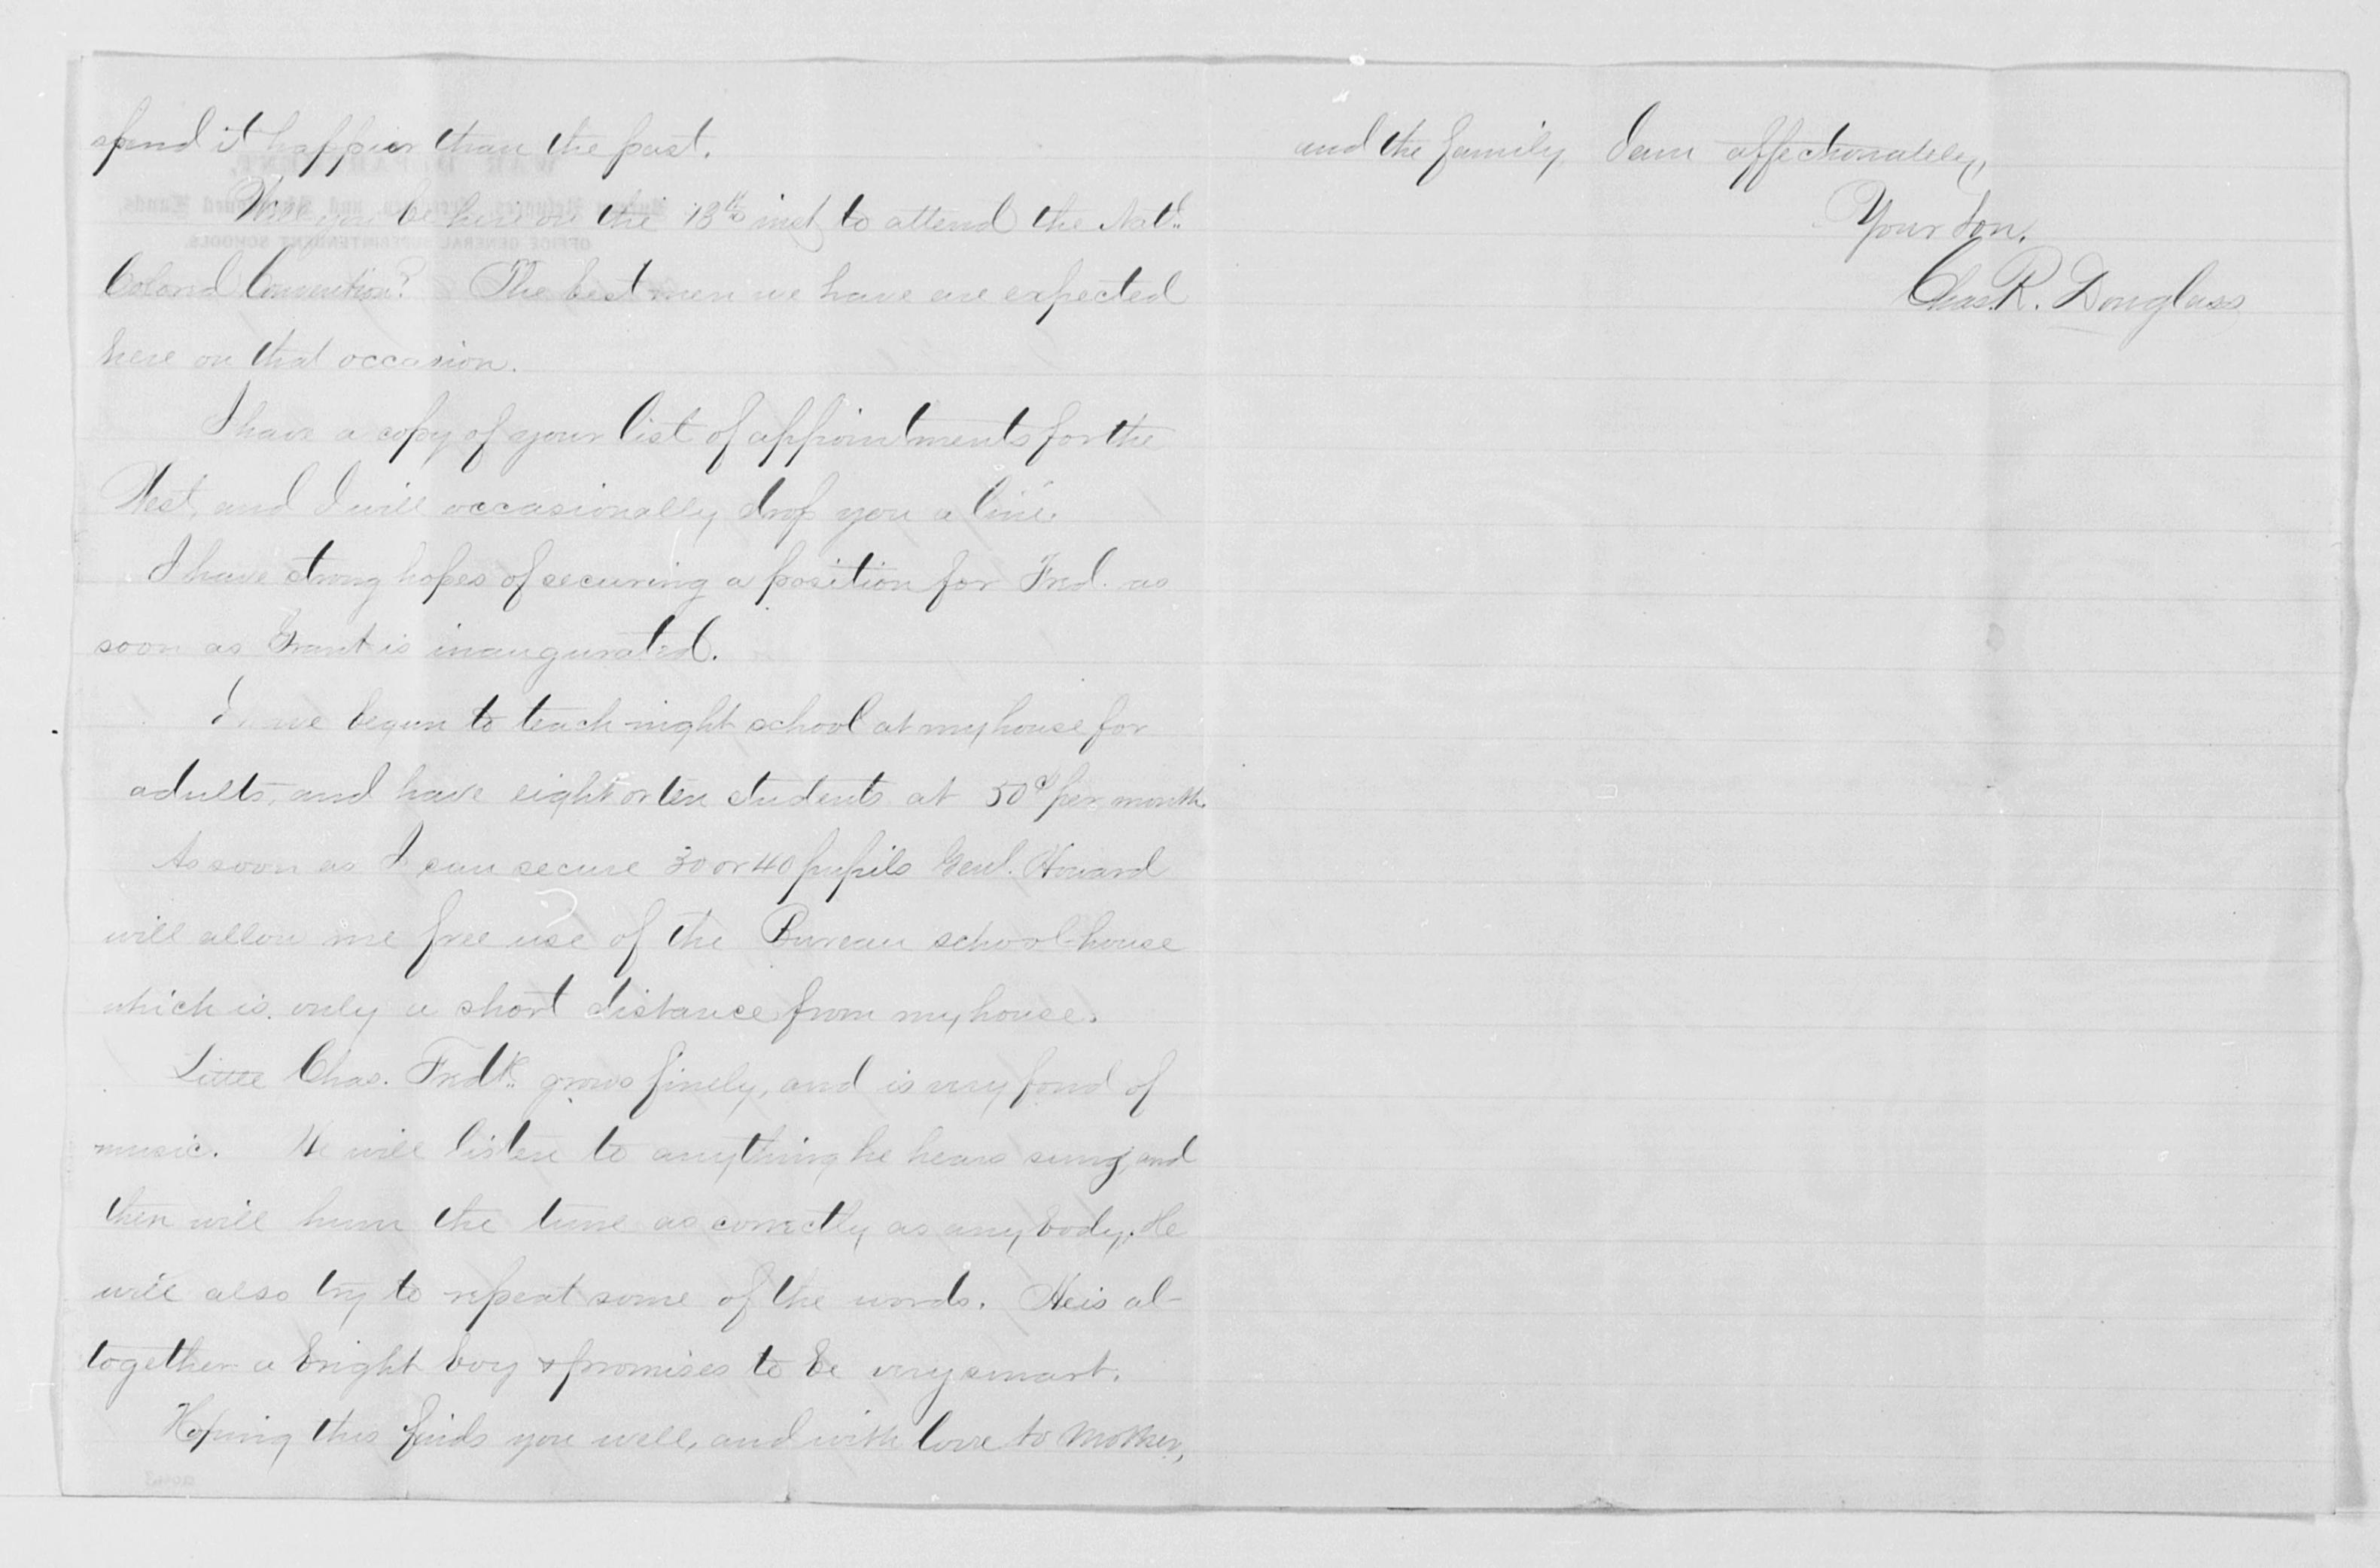 spend it happier than the past.
Will you be here on the 13th inst, to attend the Natl.
Colored Convention? The best men we have are expected
here on that occasion.
I have a copy of your list of appointments for the
West, and I will occasionally drop you a line.
I have strong hopes of securing a position for Fred. as
soon as Grant is inaugurated.
I have begun to teach night school at my house for
adults, and have eight or ten students at 50cts per month.
As soon as I can secure 30 or 40 pupils Genl. Howard
will allow me free use of the Bureau school-house
which is only a short distance from my house.
Little Chas. Fredk. grows finely, and is very fond of
music. He will listen to anything he hears sung, and
then will hum the tune as correctly as any body. He
will also try to repeat some of the words. He is al-
together a bright boy & promises to be very smart.
Hoping this finds you well, and with love to Mother,
and the family I am affectionately,
Your Son.
Chas. R. Douglass